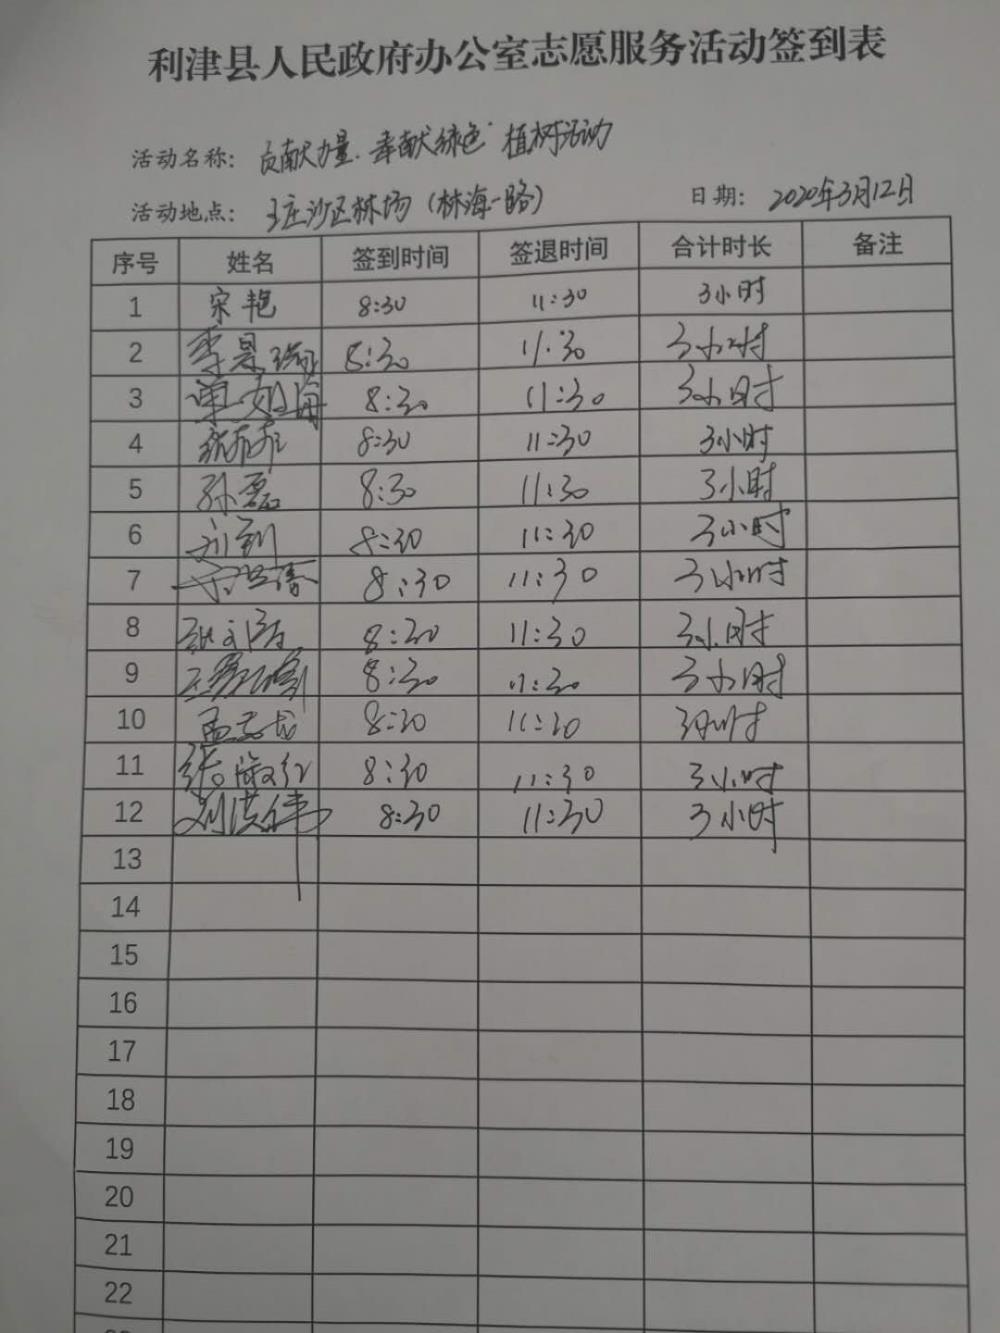 利津县人民政府办公室志愿服务活动签到表
活动名称: 贡献力量.奉献绿色 植树活动
活动地点: 王庄沙区林场(林海一路) 日期: 2020年3月12日
序号 姓名 签到时间 签退时间 合计时长 备注
1 宋艳 8:30 11:30 3小时
2 李景瑞 8:30 11:30 3小时
3 8:30 11:30 3小时
4 8:30 11:30 3小时
5 孙磊 8:30 11:30 3小时
6 刘 8:30 11:30 3小时
7 8:30 11:30 3小时
8 8:30 11:30 3小时
9 8:30 11:30 3小时
10 孟志龙 8:30 11:30 3小时
11 张淑红 8:30 11:30 3小时
12 刘洪伟 8:30 11:30 3小时
13
14
15
16
17
18
19
20
21
22